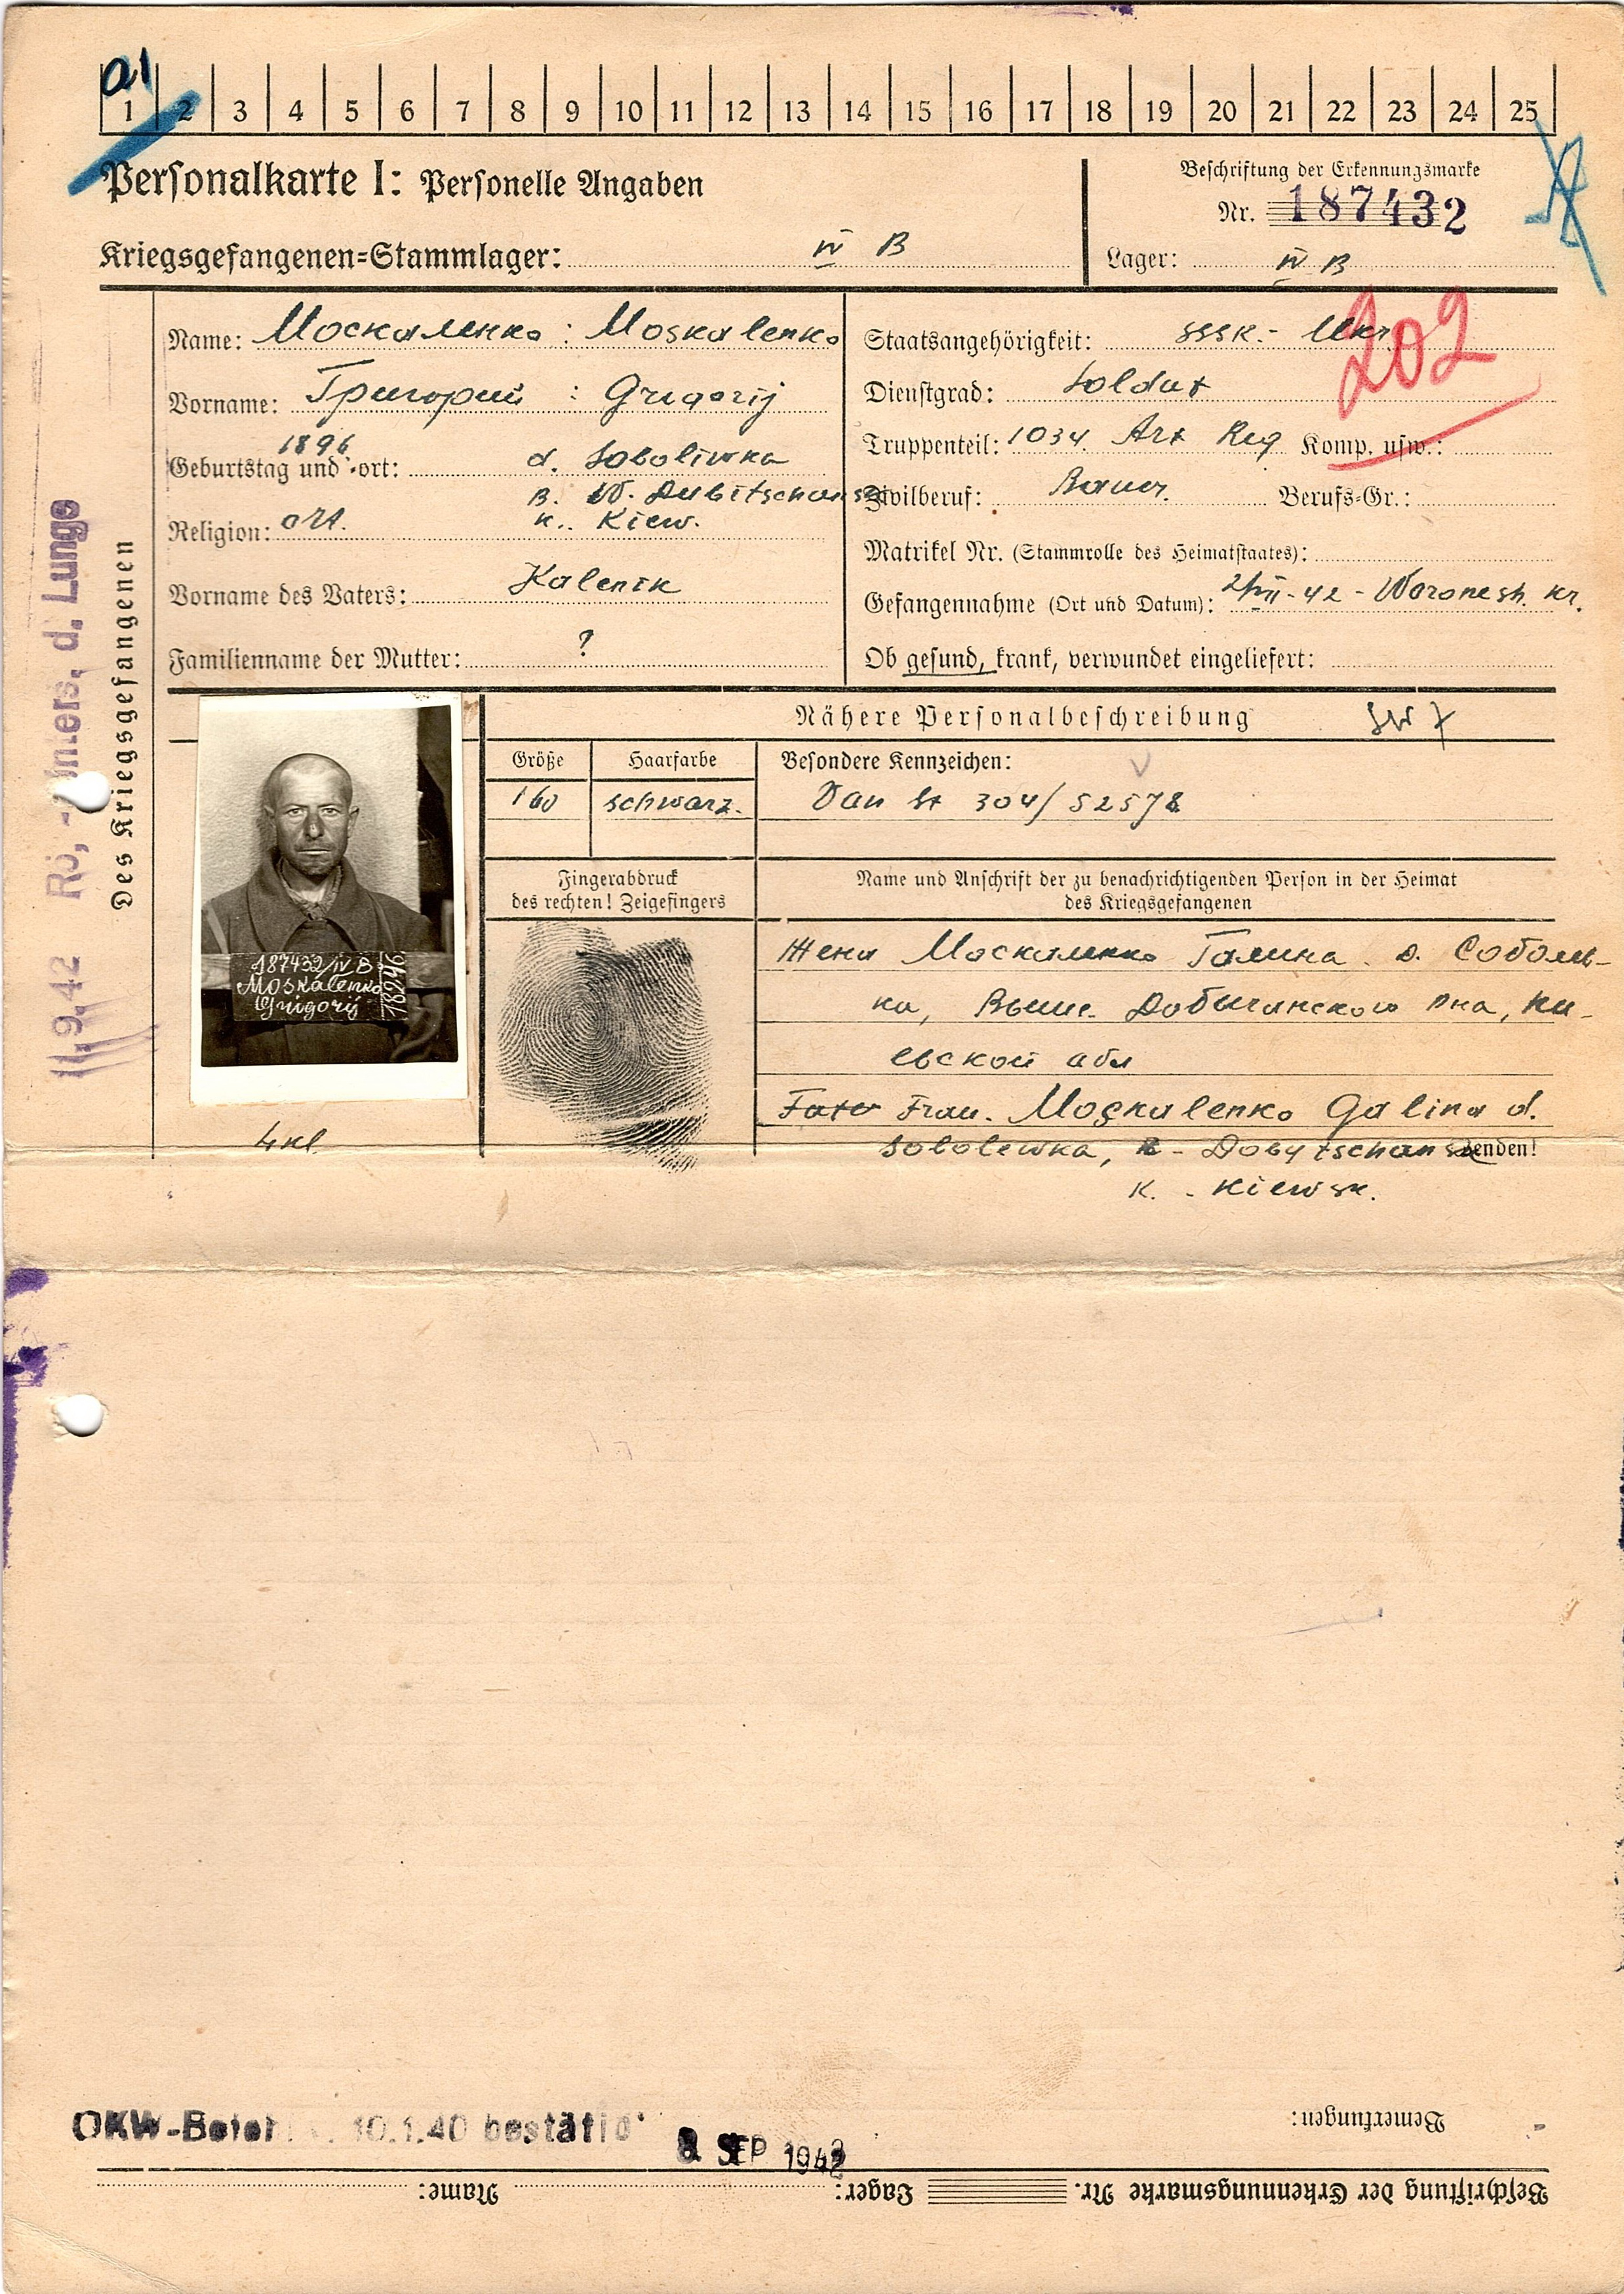 a1
1 2 3 4 5 6 7 8 9 10 11 12 13 14 15 16 17 18 19 20 21 22 23 24 25
Personalkarte I: Personelle Angaben
Beschriftung der Erkennungsmarke
Nr. 187432
Kriegsgefangenen-Stammlager: IV B
Lager: IV B
Des Kriegsgefangenen
11.9.42 Rö,- d. Lunge
Name: Москаленко : Moskalenko
Vorname: Григорий : Grigorij
Geburtstag und -ort: 1896 d. Soboliwka
B. W. Dubitschansk
Religion: ort. K. Kiew.
Vorname des Vaters: Kalenik
Familienname der Mutter: ?
Staatsangehörigkeit: SSSR.- Ukr.
202
Dienstgrad: Soldat
Truppenteil: 1034 Art Reg Komp. usw.:
Zivilberuf: Bauer. Berufs-Gr.:
Matrikel Nr. (Stammrolle des Heimatstaates):
Gefangennahme (Ort und Datum): 2/VII-42 - Woronesh. Kr.
Ob gesund, krank, verwundet eingeliefert:
187432/IV B
Moskalenko
Grigorij
18246
4 kl.
Nähere Personalbeschreibung
Größe Haarfarbe Besondere Kennzeichen:
160 schwarz. Von St 304/52578
Fingerabdruck
des rechten! Zeigefingers
Name und Anschrift der zu benachrichtigenden Person in der Heimat
des Kriegsgefangenen
Жена Москаленко Галина. д. Соболь-
ка, Выше. Добычанского рна, Ки-
евской обл
Frau. Moskalenko Galina d.
Sobolewka, R - Dobytschansk
enden!
K. - Kiewsk.
OKW-Befehl v. 10.1.40 bestätig
8. SEP 1942
Bemerkungen:
Beschriftung der Erkennungsmarke Nr. Lager: Name: